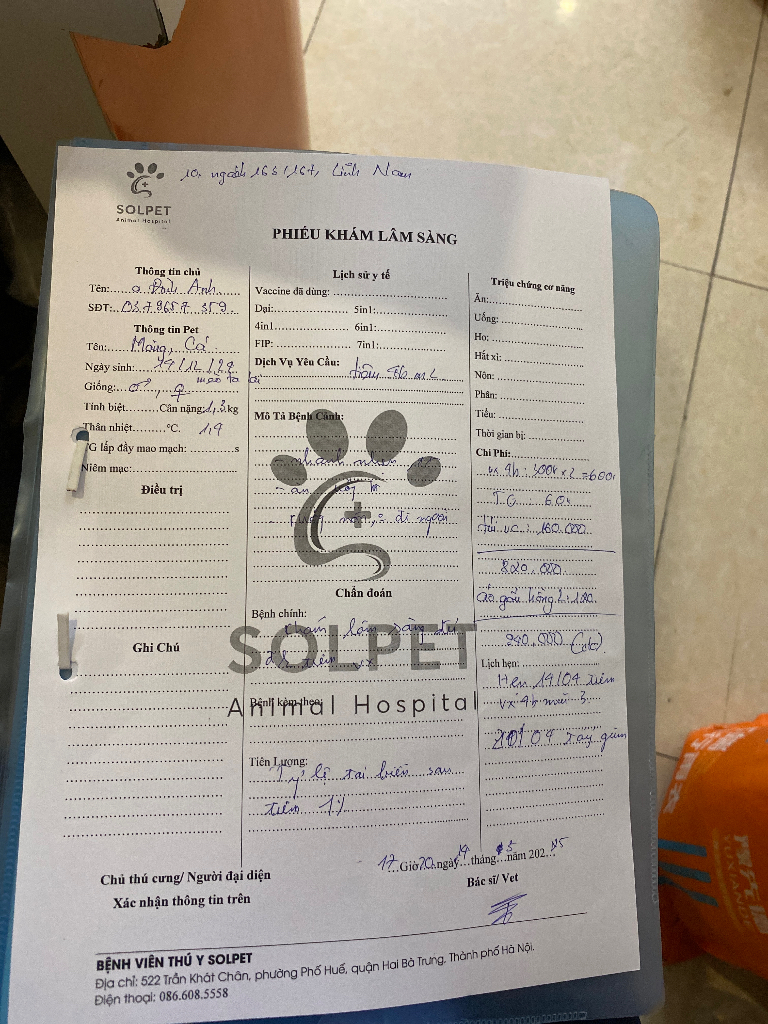 10. ngách 168/167, Lĩnh Nam
SOLPET
Animal Hospital
PHIẾU KHÁM LÂM SÀNG
Thông tin chủ
Tên: a Đức Anh
SĐT: 0379657 359
Thông tin Pet
Tên: Mỏng, Cá
Ngày sinh: 19/12/
Giống: ♂, ♀ mèo ta lai
Tính biệt Cân nặng: 1,3 kg
Thân nhiệt °C. 1,9
TG lấp đầy mao mạch: s
Niêm mạc:
Điều trị
Ghi Chú
Lịch sử y tế
Vaccine đã dùng:
Dại: 5in1:
4in1 6in1:
FIP: 7in1:
Dịch Vụ Yêu Cầu: tiêm 4b m2
Mô Tả Bệnh Cảnh:
- nhanh nhẹn
- ăn
nôn, đi ngoài
Chẩn đoán
Bệnh chính: khám lâm sàng đủ
đk tiêm vx
SOLPET
Animal Hospital
Bệnh kèm theo:
Tiên Lượng: Tỷ lệ tai biến sau
tiêm 1%
Triệu chứng cơ năng
Ăn:
Uống:
Ho:
Hắt xì:
Nôn:
Phân:
Tiểu:
Thời gian bị:
Chi Phí:
vx 4b: 300k x 2 = 600k
T.G : 60k
túi vc: 160.000
820.000
áo gấu hồng 2: 120
940.000 (ck)
Lịch hẹn:
Hẹn 19/04 tiêm
vx 4b mũi 3
20/04 tẩy giun
17 Giờ 20 ngày 19 tháng 5 năm 202
Chủ thú cưng/ Người đại diện
Xác nhận thông tin trên
Bác sĩ/ Vet
BỆNH VIỆN THÚ Y SOLPET
Địa chỉ: 522 Trần Khát Chân, phường Phố Huế, quận Hai Bà Trưng, Thành phố Hà Nội.
Điện thoại: 086.608.5558